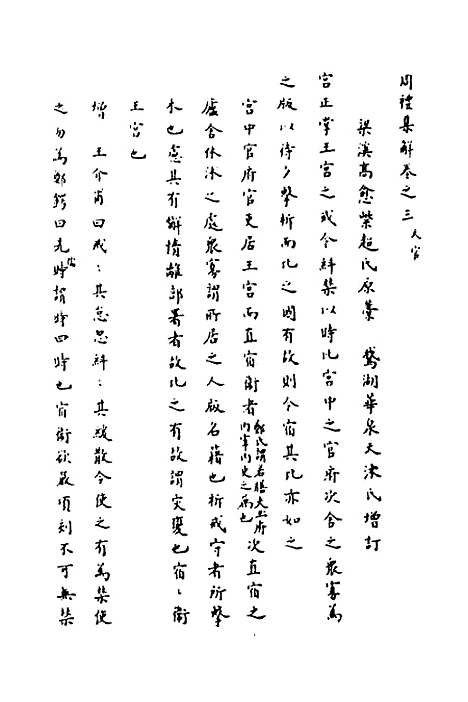 周禮集解卷之三 天官
梁溪高愈紫超氏原藁 鵞湖華泉天沐氏增訂
宮正掌王宮之戒令糾禁以時比宮中之官府次舍之衆寡爲
之版以待夕擊柝而比之國有故則令宿其比亦如之
宮中官府官吏居王宮而直宿衛者鄭氏謂若膳夫玉府內宰內史之屬也次直宿之
廬舍休沐之處衆寡謂所居之人版名籍也柝戒守者所擊
木也慮其有懈惰離部署者故比之有故謂灾變也宿〻衛
王宮也
增 王介甫曰戒〻其怠忽糾〻其緩散令使之有爲禁使
之勿爲鄭鍔曰先時謂時四時也宿衛欲嚴頃刻不可無禁